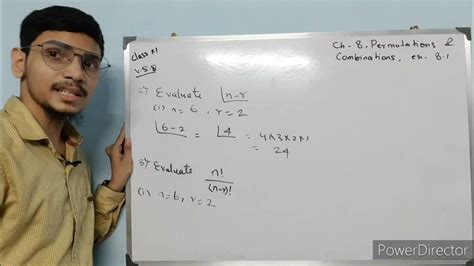 Class XI
V.S.B
Ch. 8, Permutations &
Combinations, en. 8.1
Evaluate ⌊n-r
(i) n=6, r=2
⌊6-2 = ⌊4 = 4×3×2×1
= 24
Evaluate n!
(n-r)!
(i) n=6, r=2
PowerDirector